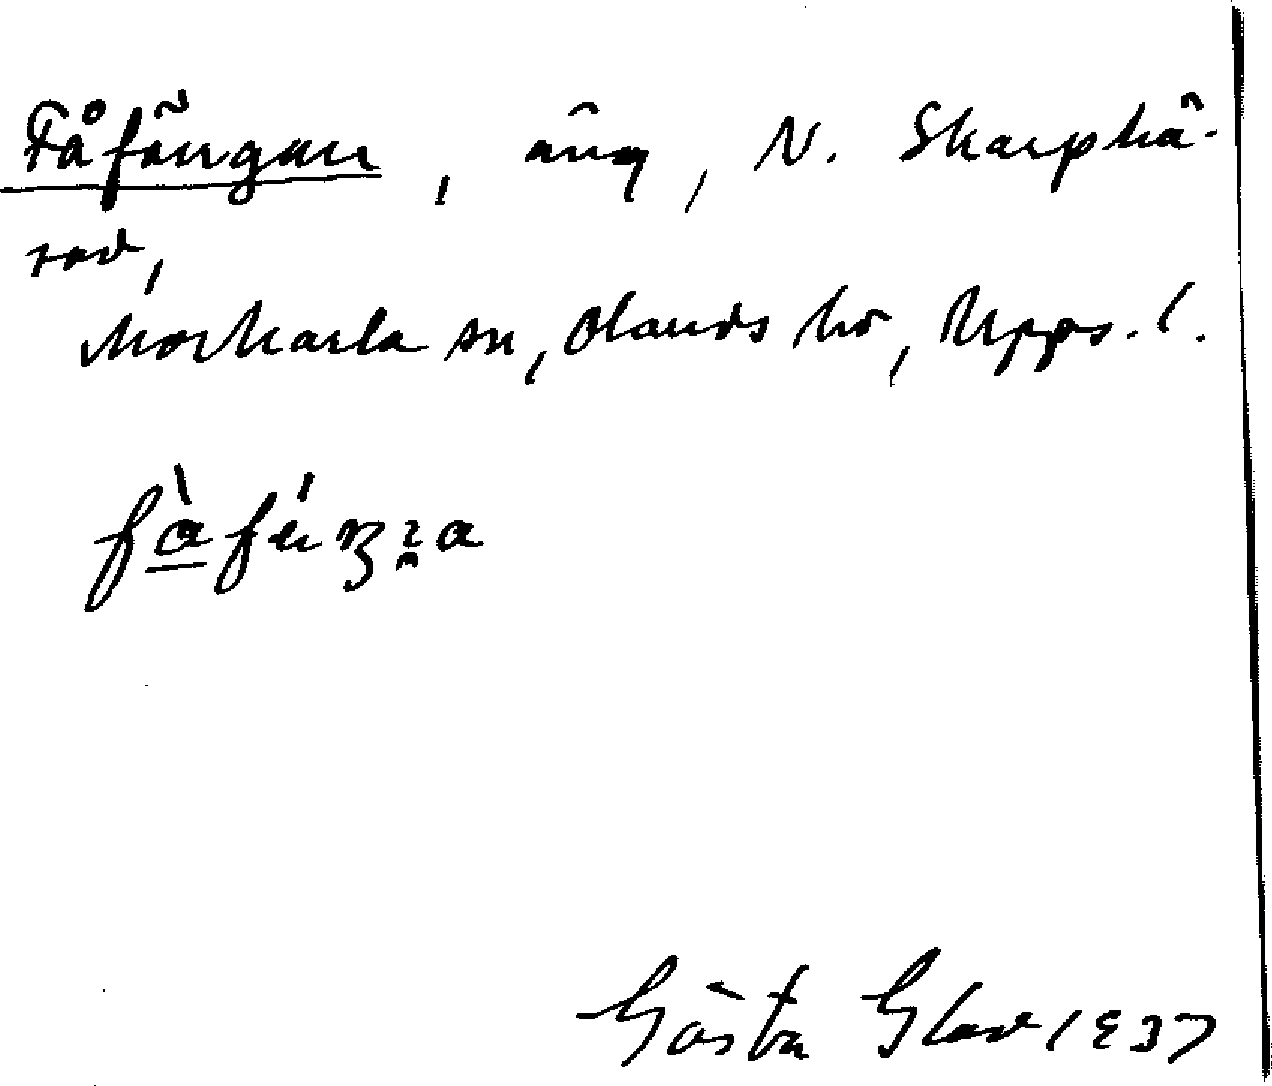 Fåfängan, äng, N. Skarphä-
rad,
Morkarla sn, Olands hd, Upps. l.
Gösta Glad 1937